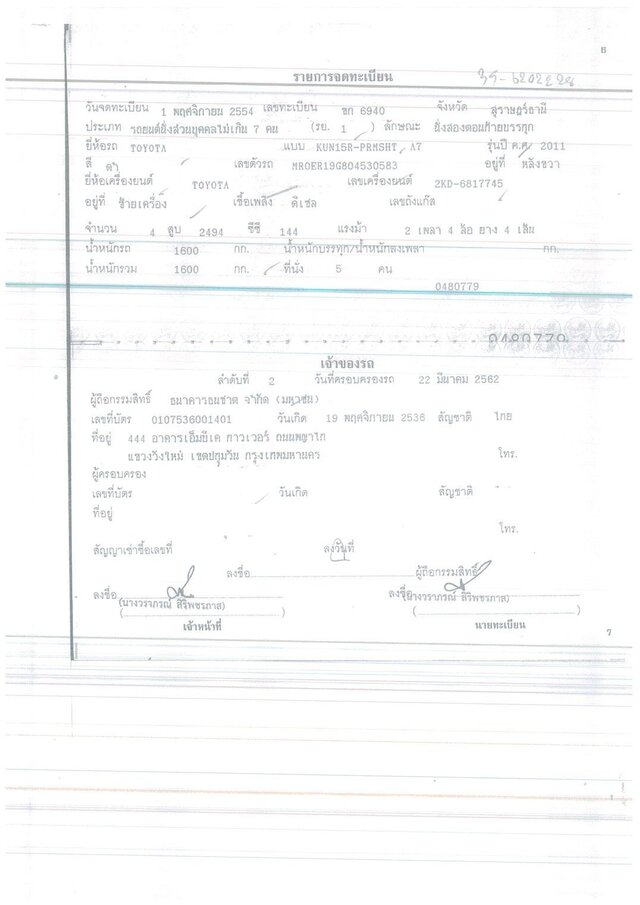 6
รายการจดทะเบียน
วันจดทะเบียน 1 พฤศจิกายน 2554 เลขทะเบียน ขก 6940 จังหวัด สุราษฎร์ธานี
ประเภท รถยนต์นั่งส่วนบุคคลไม่เกิน 7 คน (รย. 1 ) ลักษณะ นั่งสองตอนท้ายบรรทุก
ยี่ห้อรถ TOYOTA แบบ KUN15R-PRMSHT, A7 รุ่นปี ค.ศ. 2011
สี ดำ เลขตัวรถ MROER19G804530583 อยู่ที่ หลังขวา
ยี่ห้อเครื่องยนต์ TOYOTA เลขเครื่องยนต์ 2KD-6817745
อยู่ที่ ซ้ายเครื่อง เชื้อเพลิง ดีเซล เลขถังแก๊ส
จำนวน 4 สูบ 2494 ซีซี 144 แรงม้า 2 เพลา 4 ล้อ ยาง 4 เส้น
น้ำหนักรถ 1600 กก. น้ำหนักบรรทุก/น้ำหนักลงเพลา กก.
น้ำหนักรวม 1600 กก. ที่นั่ง 5 คน
0480779
0480779
เจ้าของรถ
ลำดับที่ 2 วันที่ครอบครองรถ 22 มีนาคม 2562
ผู้ถือกรรมสิทธิ์ ธนาคารธนชาต จำกัด (มหาชน)
เลขที่บัตร 0107536001401 วันเกิด 19 พฤศจิกายน 2536 สัญชาติ ไทย
ที่อยู่ 444 อาคารเอ็มบีเค ทาวเวอร์ ถนนพญาไท
แขวงวังใหม่ เขตปทุมวัน กรุงเทพมหานคร โทร.
ผู้ครอบครอง
เลขที่บัตร วันเกิด สัญชาติ
ที่อยู่
โทร.
สัญญาเช่าซื้อเลขที่ ลงวันที่
ลงชื่อ ผู้ถือกรรมสิทธิ์
ลงชื่อ ลงชื่อ
(นางวราภรณ์ สิริพชรภาส) (นางวราภรณ์ สิริพชรภาส)
เจ้าหน้าที่ นายทะเบียน
7